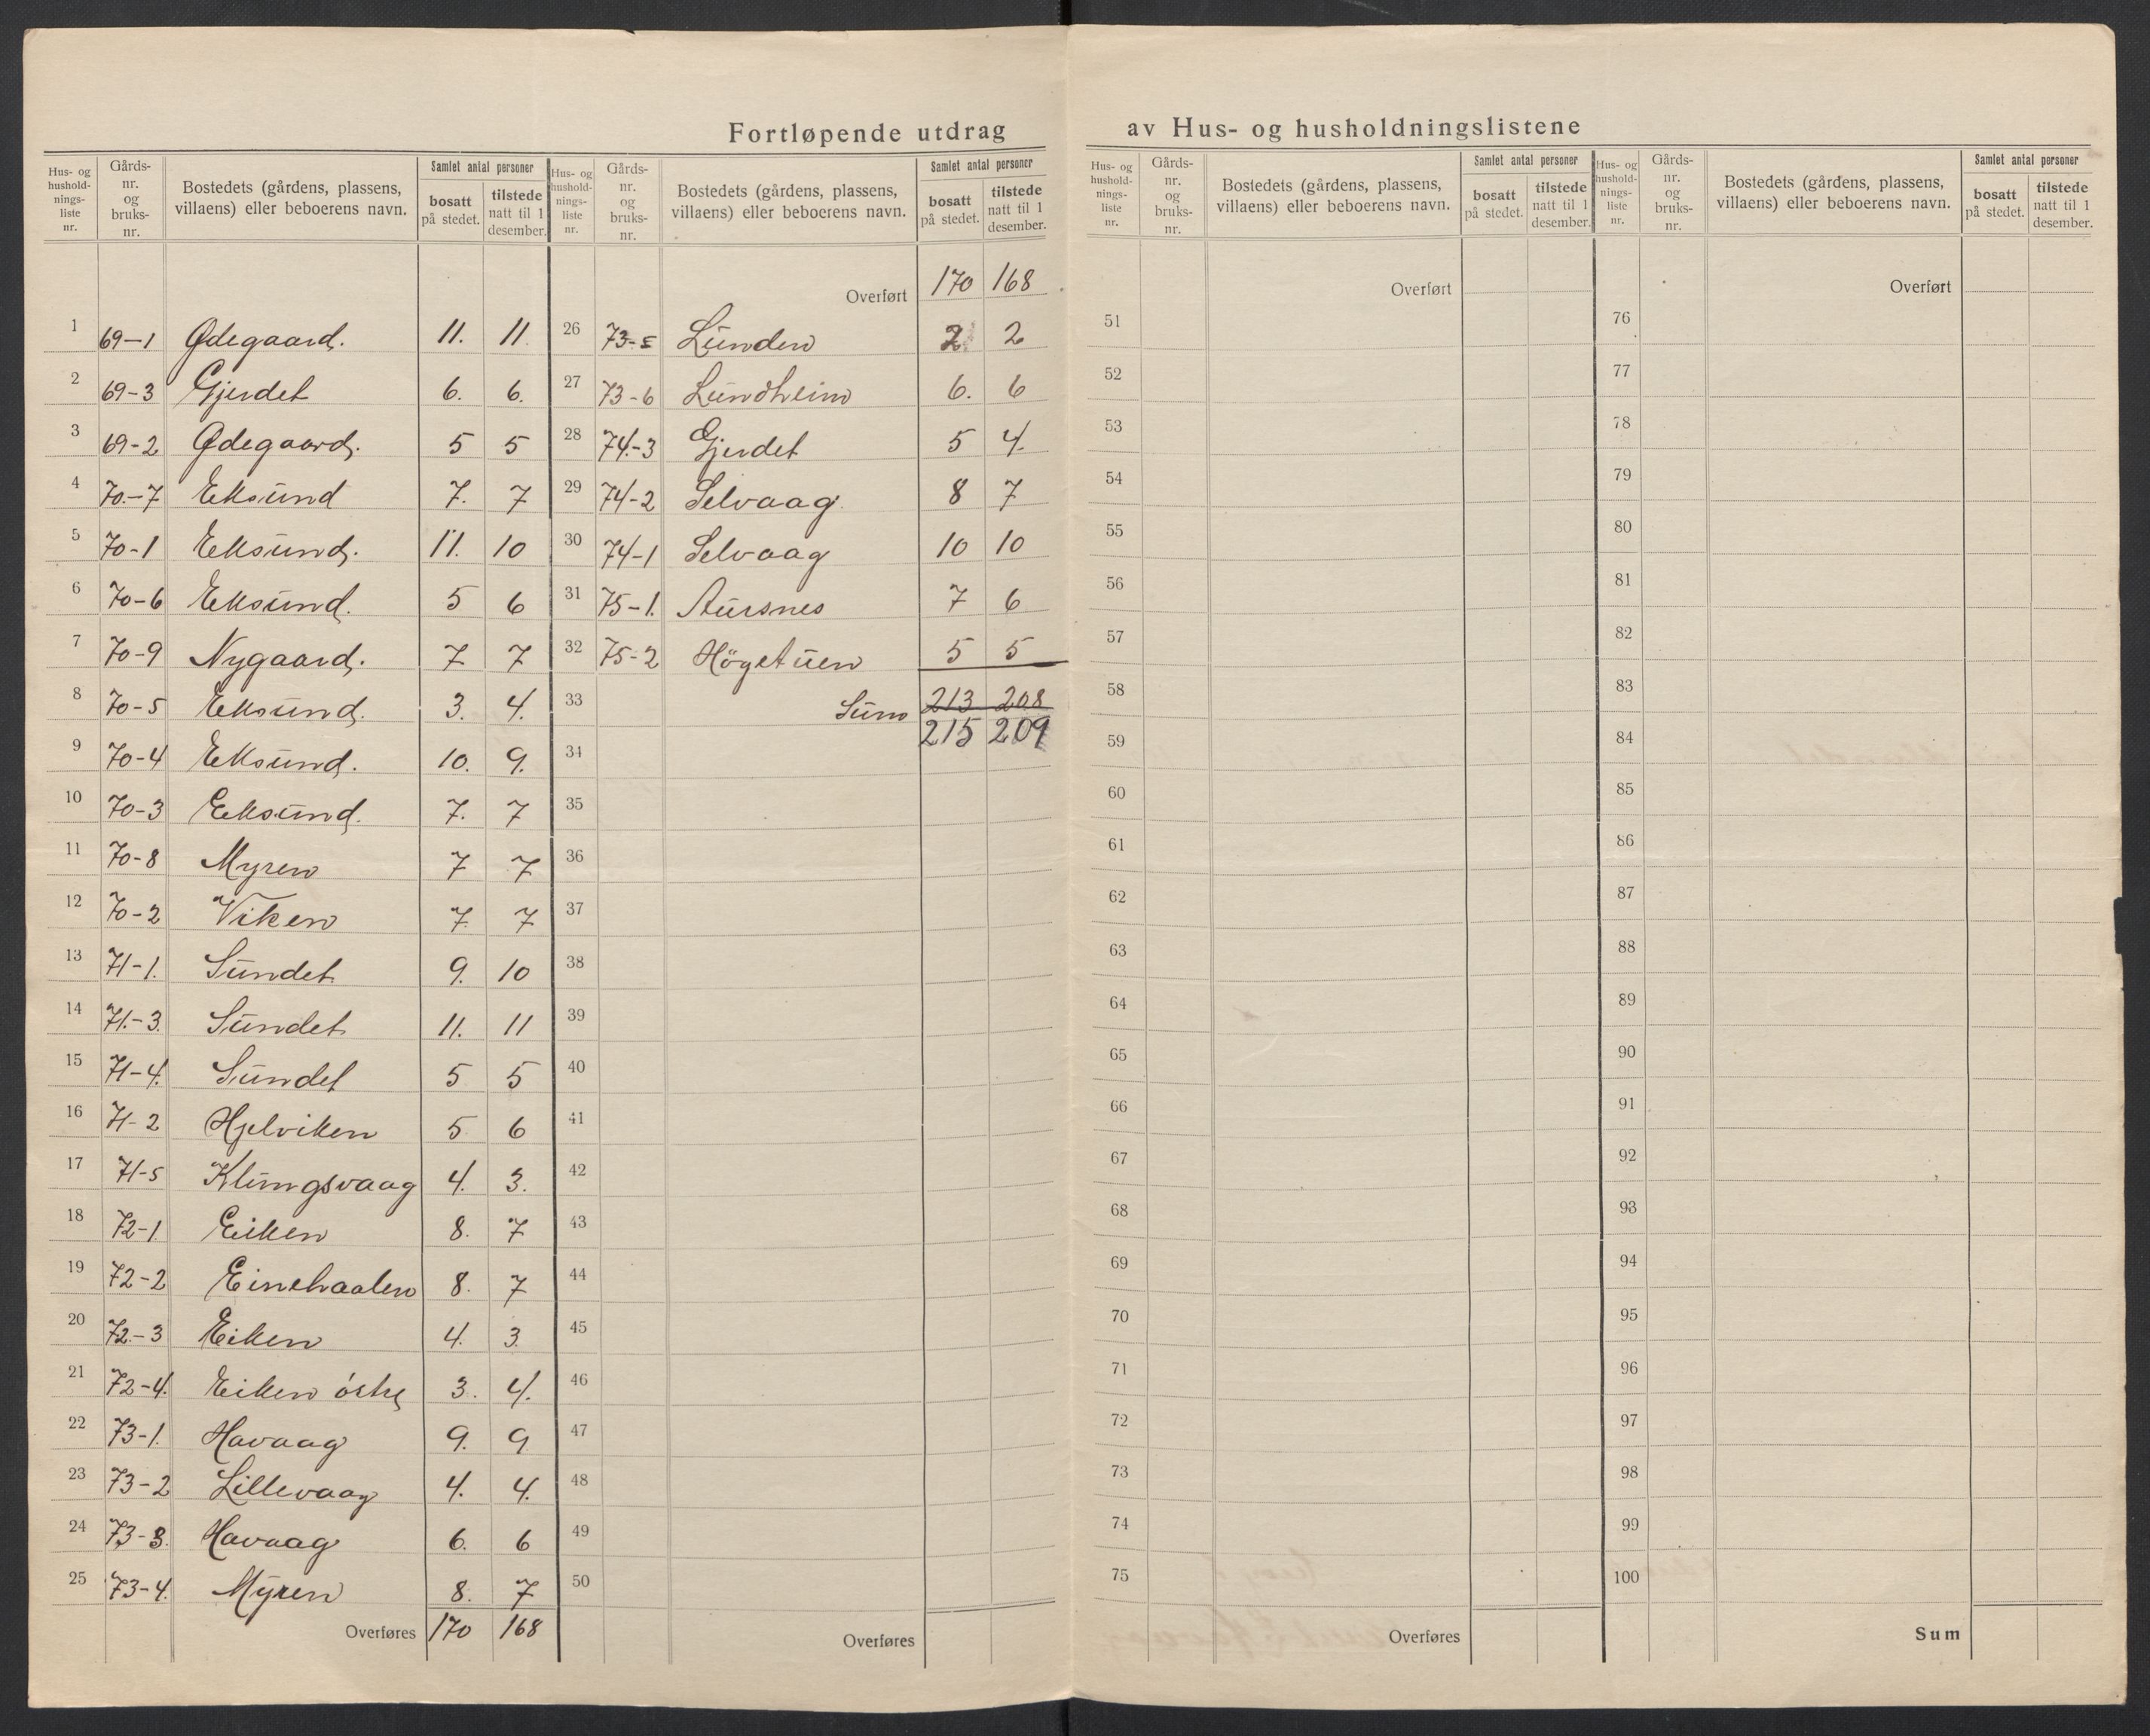 Fortløpende utdrag av Hus- og husholdningslistene
Hus- og hushold-nings-liste nr. | Gårds-nr. og bruks-nr. | Bostedets (gårdens, plassens, villaens) eller beboerens navn. | Samlet antal personer | bosatt på stedet. | tilstede natt til 1 desember.
1 69-1 Ødegaard. 11. 11.
2 69-3 Gjerdet 6. 6.
3 69-2 Ødegaard. 5 5
4 70-7 Eksund 7. 7
5 70-1 Eksund. 11. 10
6 70-6 Eksund. 5 6
7 70-9 Nygaard. 7 7
8 70-5 Eksund. 3. 4.
9 70-4 Eksund. 10. 9.
10 70-3 Eksund. 7. 7
11 70-8 Myren 7 7
12 70-2 Viken 7. 7
13 71-1. Sundet 9. 10
14 71-3. Sundet 11. 11
15 71-4. Sundet 5 5
16 71-2 Hjelviken 5 6
17 71-5 Klungsvaag 4. 3.
18 72-1. Eiken 8. 7
19 72-2 Einehaalen 8. 7
20 72-3 Eiken 4. 3.
21 72-4. Eiken östre 3. 4.
22 73-1. Havaag 9. 9
23 73-2 Lillevaag 4. 4.
24 73-3. Havaag 6. 6
25 73-4. Myren 8. 7
Overføres 170 168
Hus- og hushold-nings-liste nr. | Gårds-nr. og bruks-nr. | Bostedets (gårdens, plassens, villaens) eller beboerens navn. | Samlet antal personer | bosatt på stedet. | tilstede natt til 1 desember.
Overført 170 168
26 73-5 Lunden 2 2
27 73-6 Lundheim 6. 6
28 74-3 Gjerdet 5 4.
29 74-2 Selvaag 8 7
30 74-1 Selvaag 10 10
31 75-1. Aursnes 7 6
32 75-2 Högetuen 5 5
33 Sum 213 208
215 209
34
35
36
37
38
39
40
41
42
43
44
45
46
47
48
49
50
Overføres
Hus- og hushold-nings-liste nr. | Gårds-nr. og bruks-nr. | Bostedets (gårdens, plassens, villaens) eller beboerens navn. | Samlet antal personer | bosatt på stedet. | tilstede natt til 1 desember.
Overført
51
52
53
54
55
56
57
58
59
60
61
62
63
64
65
66
67
68
69
70
71
72
73
74
75
Overføres
Hus- og hushold-nings-liste nr. | Gårds-nr. og bruks-nr. | Bostedets (gårdens, plassens, villaens) eller beboerens navn. | Samlet antal personer | bosatt på stedet. | tilstede natt til 1 desember.
Overført
76
77
78
79
80
81
82
83
84
85
86
87
88
89
90
91
92
93
94
95
96
97
98
99
100
Sum